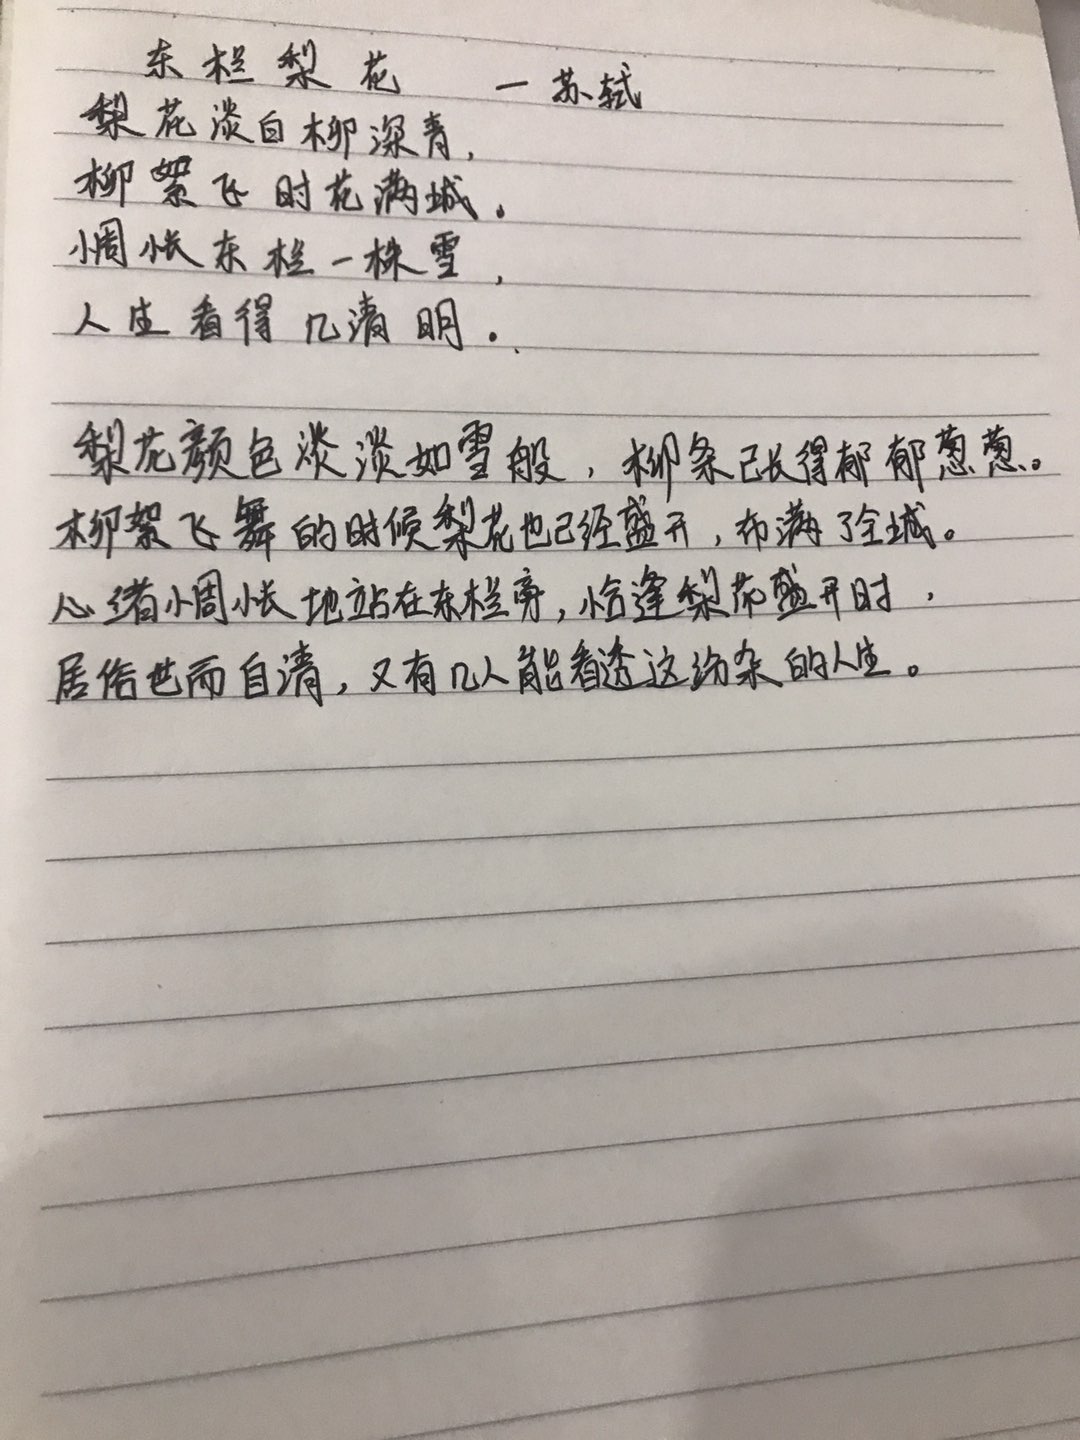 东栏梨花 一苏轼
梨花淡白柳深青,
柳絮飞时花满城。
惆怅东栏一株雪,
人生看得几清明。
梨花颜色淡淡如雪般,柳条已长得郁郁葱葱。
柳絮飞舞的时候梨花也已经盛开,布满了全城。
心绪惆怅地站在东栏旁,恰逢梨花盛开时,
居俗世而自清,又有几人能看透这纷杂的人生。